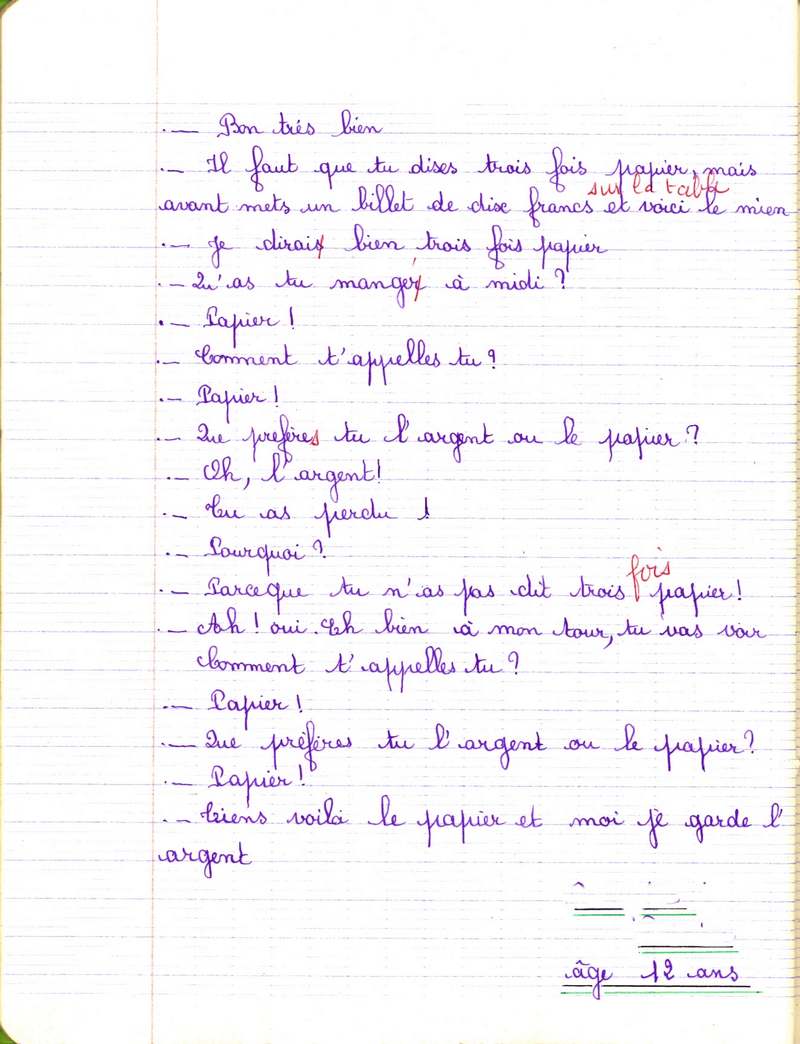 .— Bon très bien
.— Il faut que tu dises trois fois papier, mais
sur la table
avant mets un billet de dix francs et voici le mien
.— Je dirais bien trois fois papier
.— Qu'as tu manger à midi ?
.— Papier !
.— Comment t'appelles tu ?
.— Papier !
.— Que préfères tu l'argent ou le papier ?
.— Oh, l'argent !
.— Tu as perdu !
.— Pourquoi ?
fois
.— Parceque tu n'as pas dit trois papier !
.— Ah ! oui. Eh bien à mon tour, tu vas voir
Comment t'appelles tu ?
.— Papier !
.— Que préfères tu l'argent ou le papier ?
.— Papier !
.— Tiens voilà le papier et moi je garde l'
argent
âge 12 ans